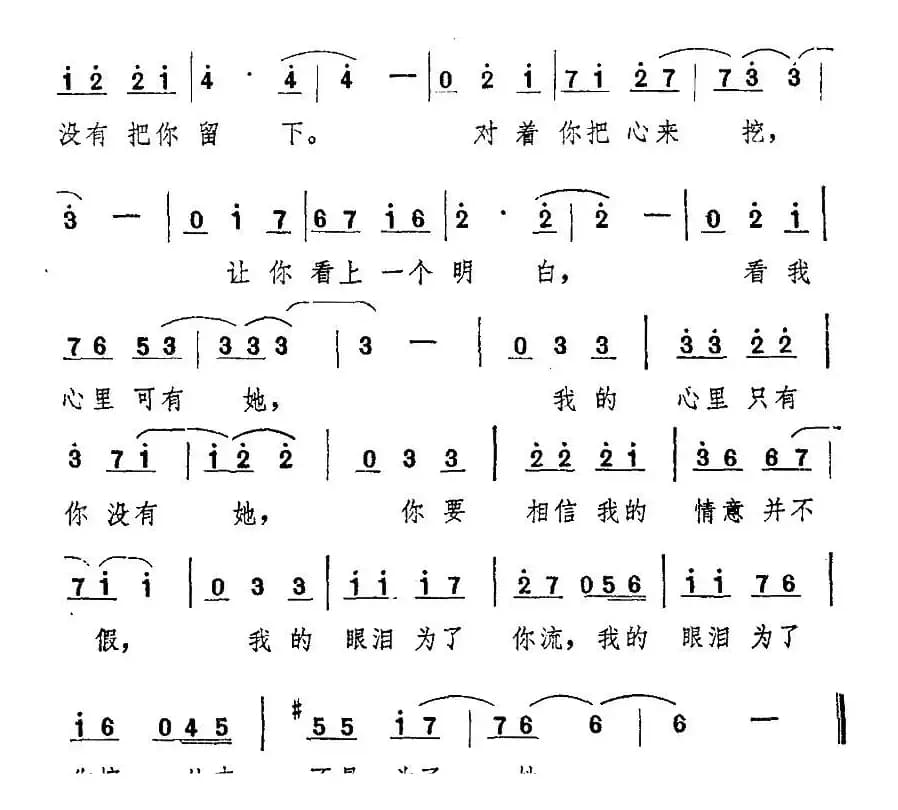 1̇ 2̇ 2̇ 1̇ | 4̇ · 4̇ | 4̇ — | 0 2̇ 1̇ | 7 1̇ 2̇ 7 | 7 3̇ 3̇ |
没有 把你 留 下。 对 着 你把 心来 挖,
3̇ — | 0 1̇ 7 | 6 7 1̇ 6 | 2̇ · 2̇ | 2̇ — | 0 2̇ 1̇ |
让 你 看上 一个 明 白, 看 我
7 6 5 3 | 3 3 3 | 3 — | 0 3 3 | 3̇ 3̇ 2̇ 2̇ |
心里 可有 她, 我 的 心里 只有
3̇ 7 1̇ | 1̇ 2̇ 2̇ | 0 3 3 | 2̇ 2̇ 2̇ 1̇ | 3̇ 6 6 7 |
你 没有 她, 你 要 相信 我的 情意 并不
7 1̇ 1̇ | 0 3 3 | 1̇ 1̇ 1̇ 7 | 2̇ 7 0 5 6 | 1̇ 1̇ 7 6 |
假, 我 的 眼泪 为了 你流, 我的 眼泪 为了
1̇ 6 0 4 5 | #5 5 1̇ 7 | 7 6 6 | 6 — ‖